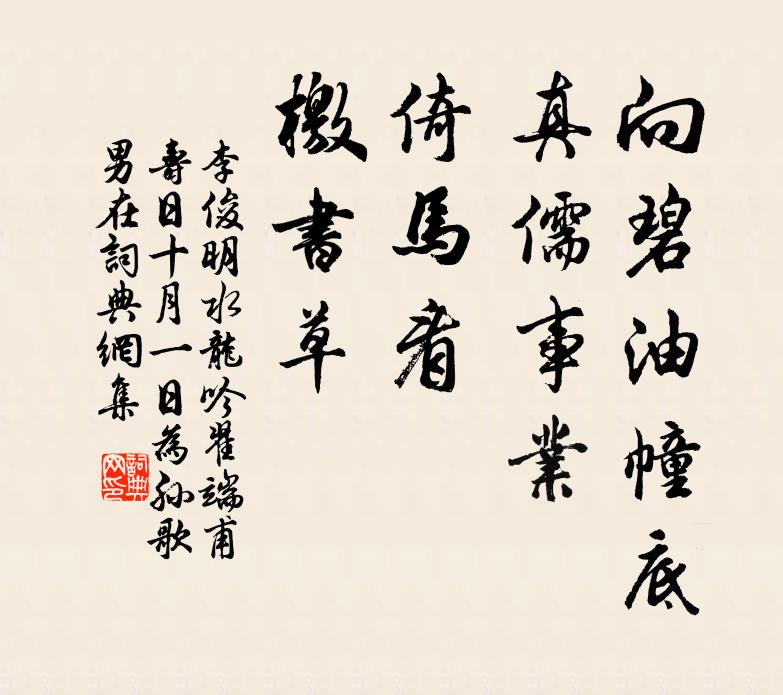 向碧油幢底
真儒事業
倚馬看
檄書草
李俊明水龍吟翟端甫
壽日十月一日為孙歌
男在詞典網集
詞典网印